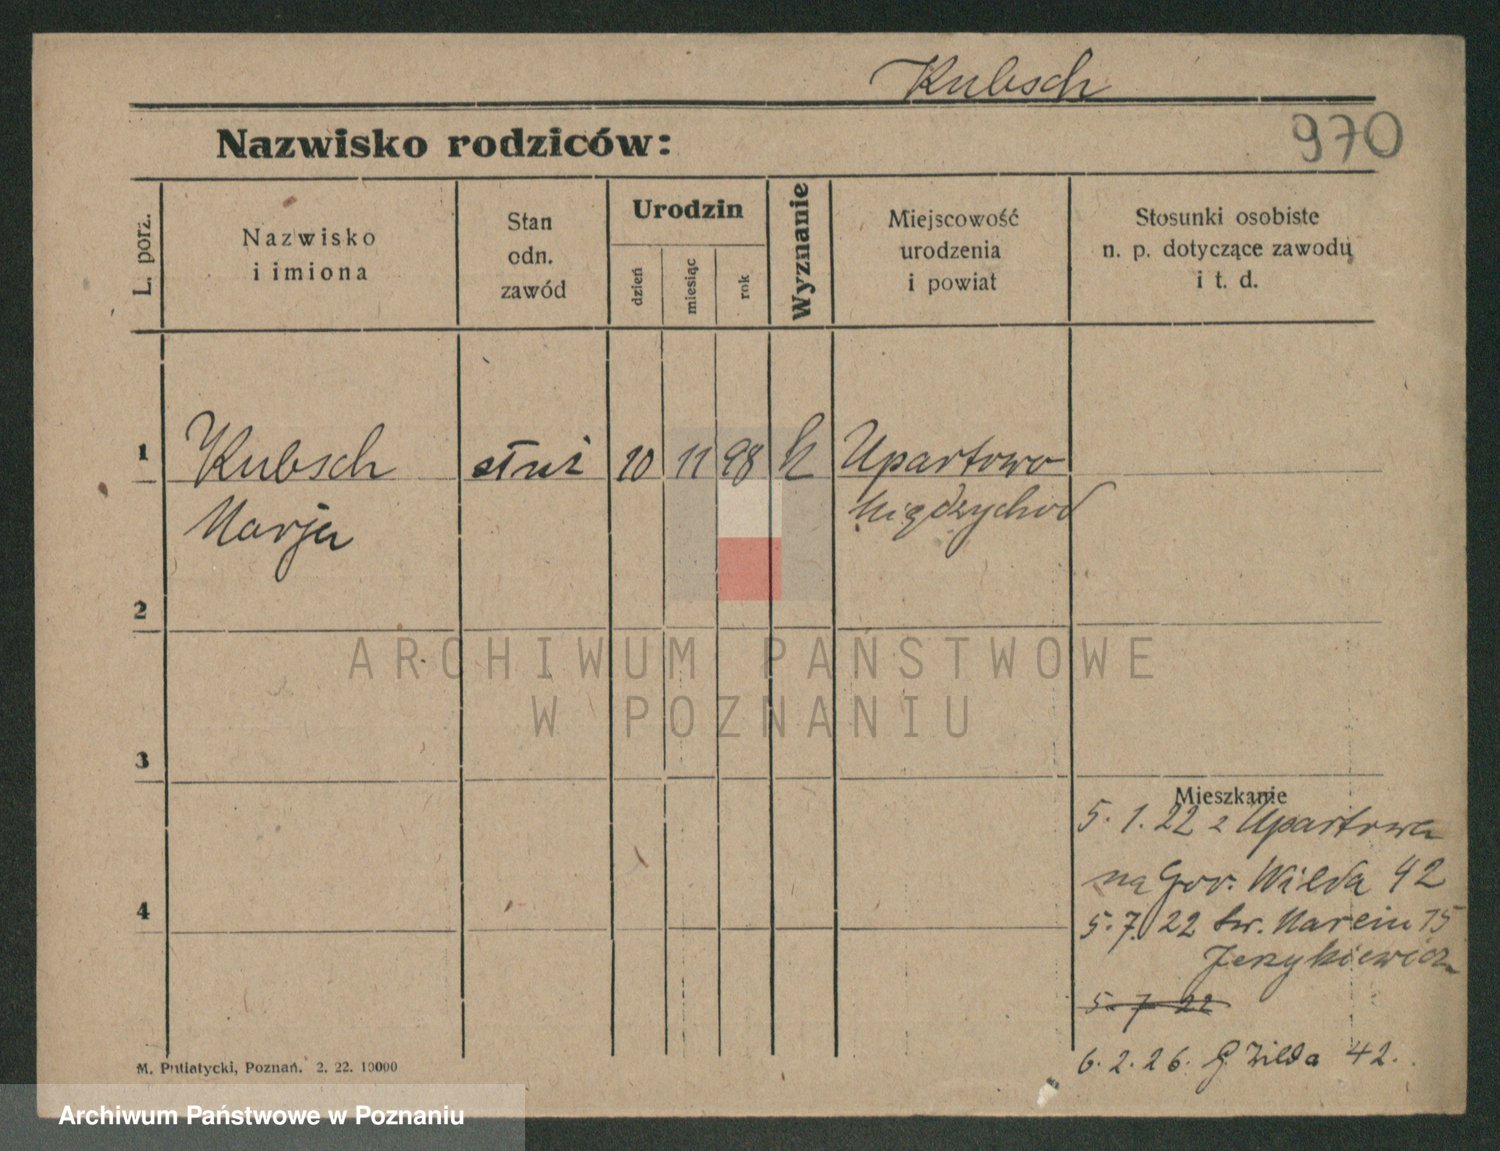 Kubsch
Nazwisko rodziców:
970
L. porz.
Nazwisko
i imiona
Stan
odn.
zawód
Urodzin
dzień
miesiąc
rok
Wyznanie
Miejscowość
urodzenia
i powiat
Stosunki osobiste
n. p. dotyczące zawodu
i t. d.
1 Kubsch służ 10 11 98 k Upartowo
Marja Międzychod
2
ARCHIWUM PAŃSTWOWE
W POZNANIU
3
Mieszkanie
5. 1. 22 z Upartowa
na Gór. Wilda 42
4
5. 7. 22 św. Marcin 75
Jerzykiewicz
5. 7 22
6. 2. 26. G. Wilda 42.
M. Putiatycki, Poznań. 2. 22. 10000
Archiwum Państwowe w Poznaniu